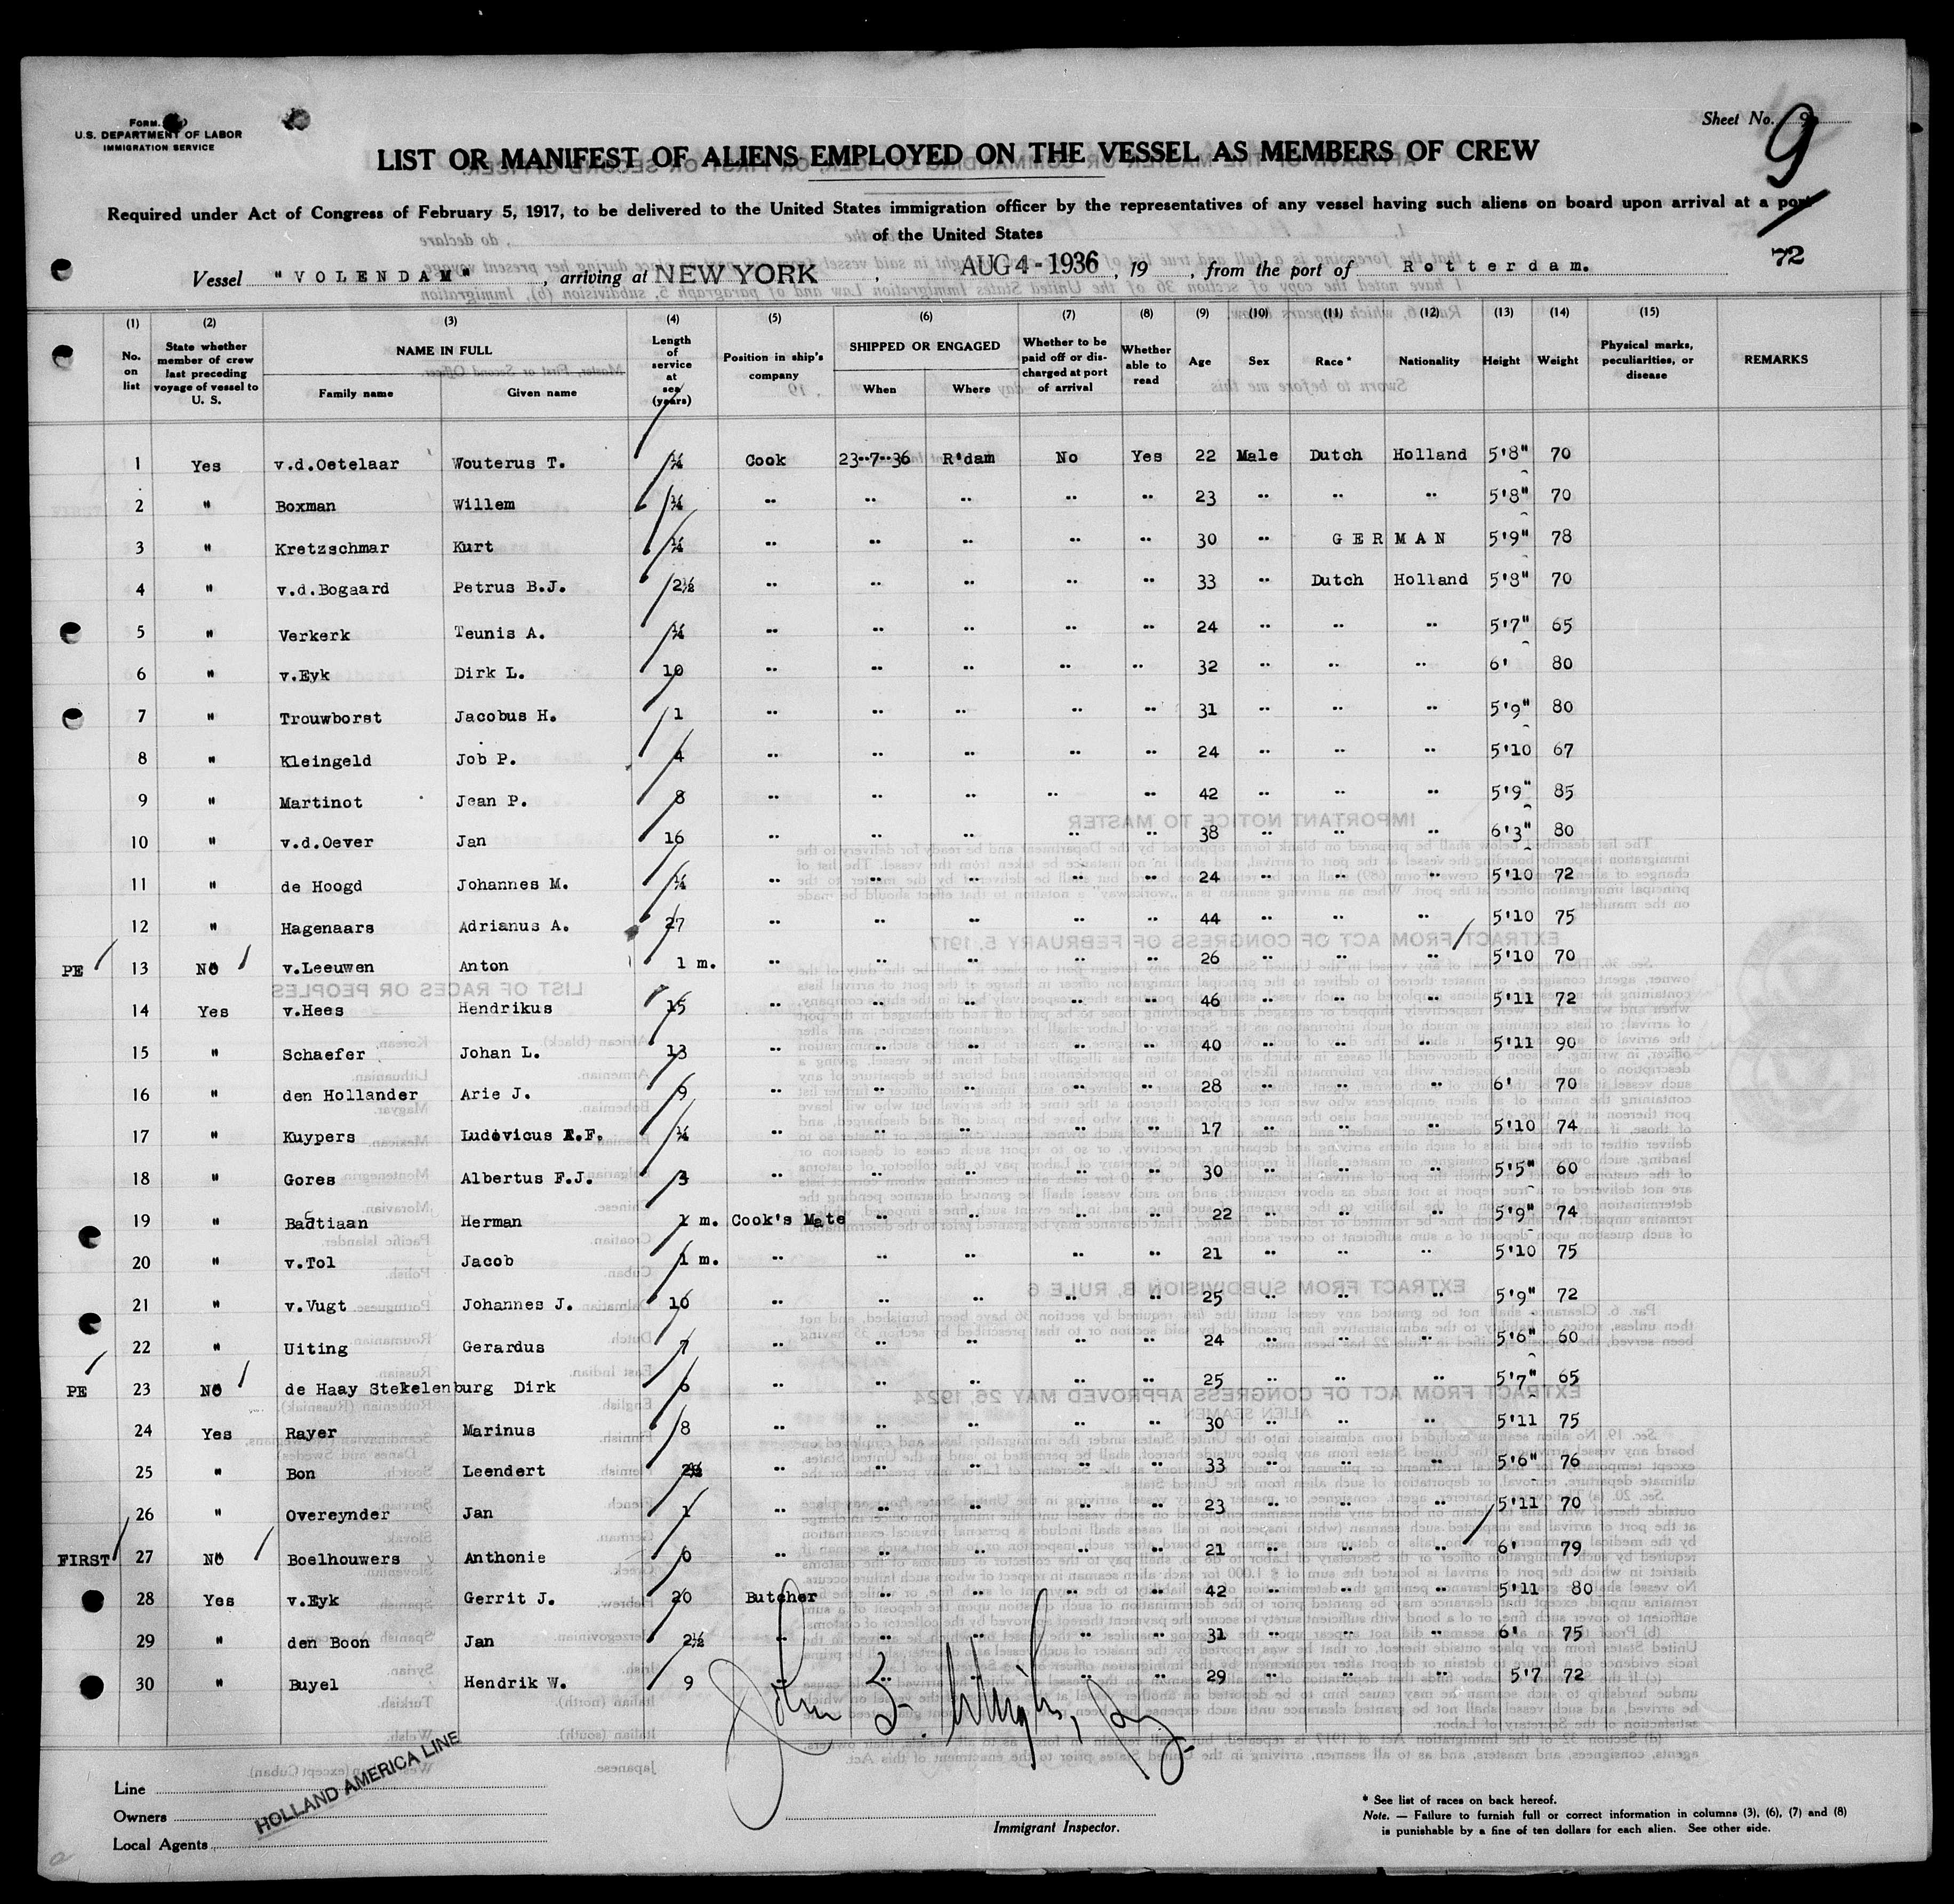 FORM.
U.S. DEPARTMENT OF LABOR
IMMIGRATION SERVICE
Sheet No. 9
9
72
LIST OR MANIFEST OF ALIENS EMPLOYED ON THE VESSEL AS MEMBERS OF CREW
Required under Act of Congress of February 5, 1917, to be delivered to the United States immigration officer by the representatives of any vessel having such aliens on board upon arrival at a port
of the United States
Vessel "VOLENDAM", arriving at NEW YORK, AUG 4 - 1936, 19, from the port of Rotterdam.
(1) (2) (3) (4) (5) (6) (7) (8) (9) (10) (11) (12) (13) (14) (15)
No. on list State whether member of crew last preceding voyage of vessel to U. S. NAME IN FULL Family name Given name Length of service at sea (years) Position in ship's company SHIPPED OR ENGAGED When Where Whether to be paid off or discharged at port of arrival Whether able to read Age Sex Race* Nationality Height Weight Physical marks, peculiarities, or disease REMARKS
1 Yes v.d.Oetelaar Wouterus T. ¼ Cook 23-7-36 R'dam No Yes 22 Male Dutch Holland 5'8" 70
2 " Boxman Willem ¼ " " " " " 23 " " " 5'8" 70
3 " Kretzschmar Kurt ¼ " " " " " 30 " GERMAN 5'9" 78
4 " v.d.Bogaard Petrus B.J. 2½ " " " " " 33 " Dutch Holland 5'8" 70
5 " Verkerk Teunis A. ¼ " " " " " 24 " " " 5'7" 65
6 " v.Eyk Dirk L. 10 " " " " " 32 " " " 6' 80
7 " Trouwborst Jacobus H. 1 " " " " " 31 " " " 5'9" 80
8 " Kleingeld Job P. 4 " " " " " 24 " " " 5'10 67
9 " Martinot Jean P. 8 " " " " " 42 " " " 5'9" 85
10 " v.d.Oever Jan 16 " " " " " 38 " " " 6'3" 80
11 " de Hoogd Johannes M. ¼ " " " " " 24 " " " 5'10 72
12 " Hagenaars Adrianus A. 27 " " " " " 44 " " " 5'10 75
PE 13 No v.Leeuwen Anton 1 m. " " " " " 26 " " " 5'10 70
14 Yes v.Hees Hendrikus 15 " " " " " 46 " " " 5'11 72
15 " Schaefer Johan L. 13 " " " " " 40 " " " 5'11 90
16 " den Hollander Arie J. 9 " " " " " 28 " " " 6' 70
17 " Kuypers Ludovicus E.F. ¼ " " " " " 17 " " " 5'10 74
18 " Gores Albertus F.J. 3 " " " " " 30 " " " 5'5" 60
19 " Bastiaan Herman 1 m. Cook's Mate " " " " 22 " " " 5'9" 74
20 " v.Tol Jacob 1 m. " " " " " 21 " " " 5'10 75
21 " v.Vugt Johannes J. 10 " " " " " 25 " " " 5'9" 72
22 " Uiting Gerardus 7 " " " " " 24 " " " 5'6" 60
PE 23 No de Haay Stekelenburg Dirk 6 " " " " " 25 " " " 5'7" 65
24 Yes Rayer Marinus 8 " " " " " 30 " " " 5'11 75
25 " Bon Leendert " " " " " 33 " " " 5'6" 76
26 " Overeynder Jan 1 " " " " " 23 " " " 5'11 70
FIRST 27 No Boelhouwers Anthonie 0 " " " " " 21 " " " 6' 79
28 Yes v.Eyk Gerrit J. 20 Butcher " " " " 42 " " " 5'11 80
29 " den Boon Jan 2½ " " " " " 31 " " " 6' 75
30 " Buyel Hendrik W. 9 " " " " " 29 " " " 5'7 72
Line
Owners
Local Agents
HOLLAND AMERICA LINE
John
Immigrant Inspector.
* See list of races on back hereof.
Note. — Failure to furnish full or correct information in columns (3), (6), (7) and (8)
is punishable by a fine of ten dollars for each alien. See other side.